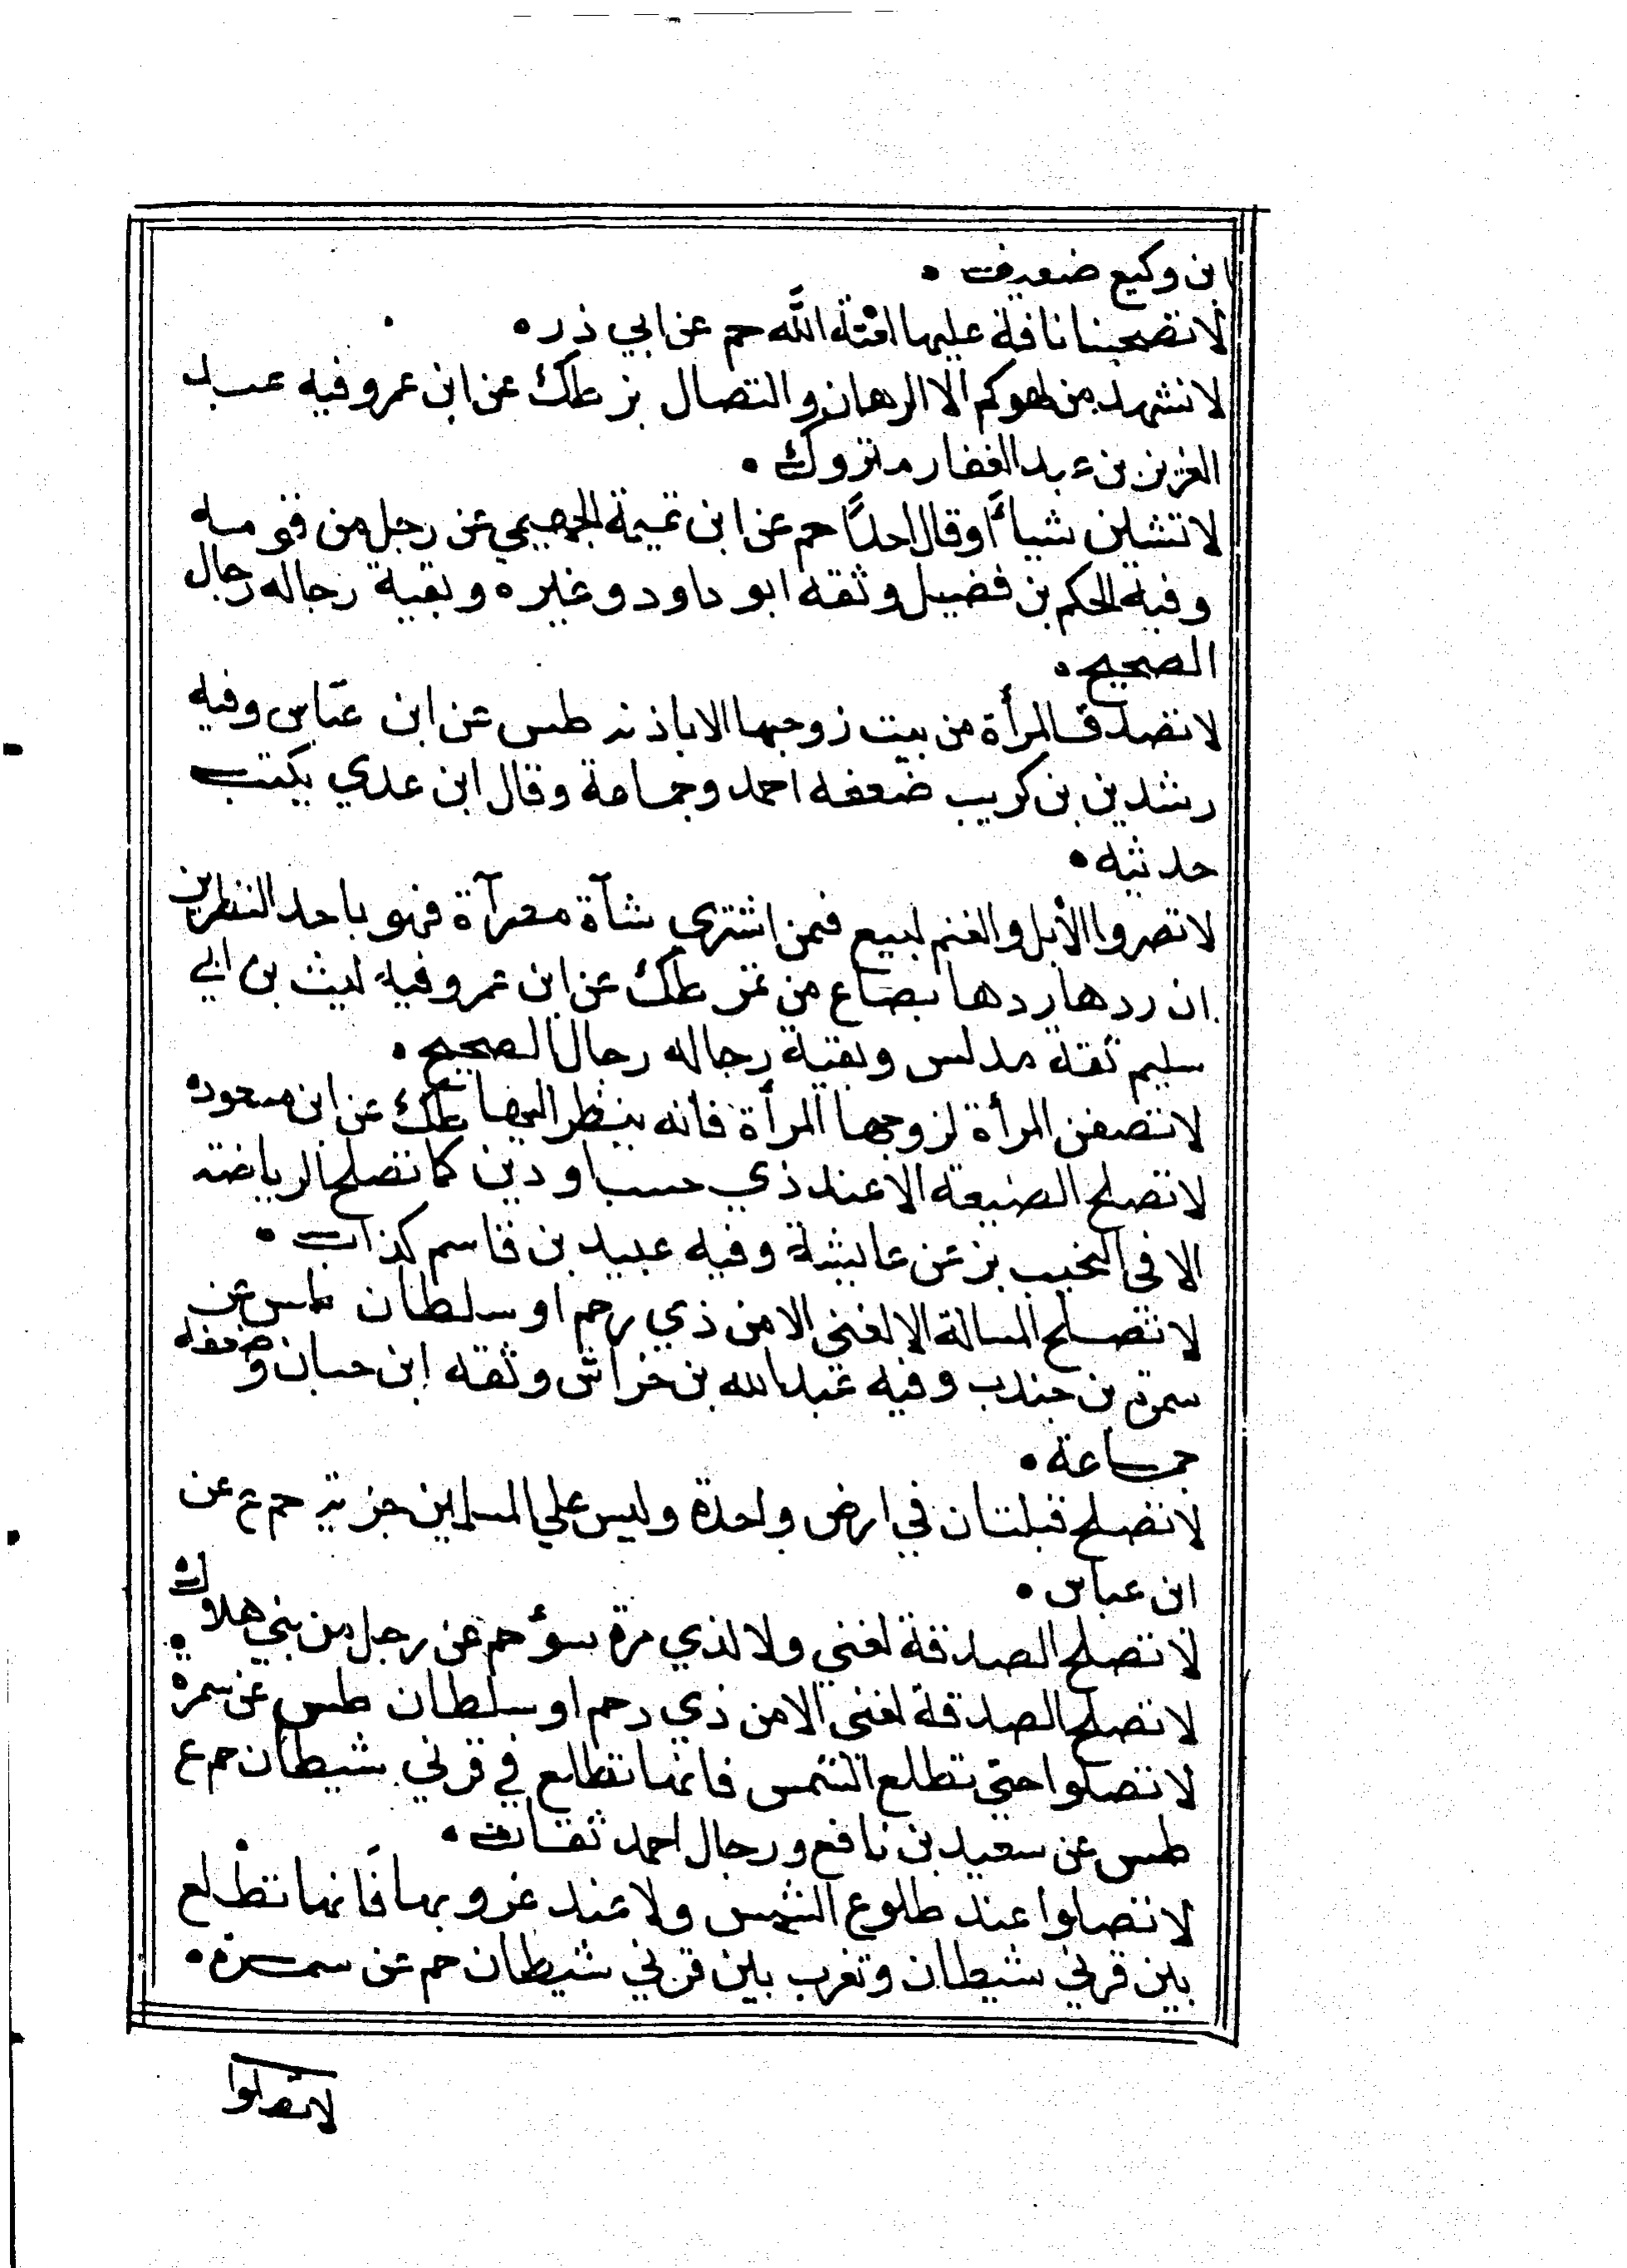 ابن وكيع ضعيف •
لا تصحبنا ناقة عليها لعنة الله حم عن ابي ذر •
لا تشهد من لهوكم الا الرهان والنضال بز طك عن ابن عمر وفيه عبد
العزيز بن عبد الغفار متروك •
لا تشلن شياً اوقال احداً حم عن ابن تميمة الهجيمي عن رجل من قومه
وفيه الحكم بن فضيل وثقه ابو داود وغيره وبقية رجاله رجال
الصحيح •
لا تصدق المرأة من بيت زوجها الا باذنه طس عن ابن عباس وفيه
رشدين بن كريب ضعفه احمد وجماعة وقال ابن عدي يكتب
حديثه •
لا تصروا الأبل والغنم لبيع فمن اشتري شآة مصرآة فهو باحد النظرين
ان ردها ردها بصاع من تمر طك عن ابن عمر وفيه ليث بن ابي
سليم ثقة مدلس وبقية رجاله رجال الصحيح •
لا تصفن المرأة لزوجها المرأة فانه ينظر اليها طك عن ابن مسعود •
لا تصلح الصنيعة الا عند ذي حسب او دين كما تصلح الرياضة
الا في النجيب بز عن عايشة وفيه عبيد بن قاسم كذاب •
لا تصلح المسالة الا لغني الا من ذي رحم او سلطان طس عن
سمرة بن جندب وفيه عبد الله بن خراش وثقه ابن حبان وضعفه
جماعة •
لا تصلح قبلتان في ارض واحدة وليس علي المسلمين جزية حم ع عن
ابن عباس •
لا تصلح الصدقة لغني ولا لذي مرة سوؤ حم عن رجل من بني هلال •
لا تصلح الصدقة لغني الا من ذي رحم او سلطان طس عن سمرة •
لا تصلوا حتي تطلع الشمس فانها تطلع في قرني شيطان حم ع
طس عن سعيد بن نافع ورجال احمد ثقات •
لا تصلوا عند طلوع الشمس ولا عند غروبها فانها تطلع
بين قرني شيطان وتغرب بين قرني شيطان حم عن سمرة •
لا تصلوا